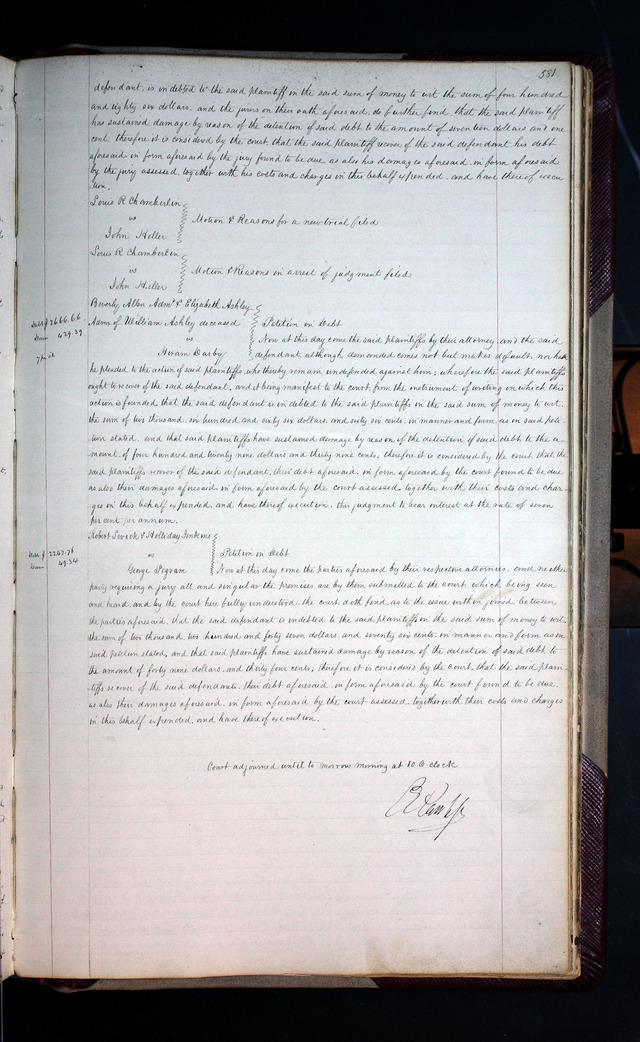 581
defendant, is indebted to the said plaintiff in the said sum of money to wit the sum of four hundred
and eighty six dollars, and the jurors on their oath aforesaid, do further find, that the said plaintiff
has sustained damage by reason of the detention of said debt to the amount of seventeen dollars and one
cent. therefore it is considered by the court that the said plaintiff recover of the said defendant his debt
aforesaid in form aforesaid by the jury found to be due as also his damages aforesaid in form aforesaid
by the jury assessed, together with his costs and charges in this behalf expended, and have thereof execu
tion.
Louis R Chamberlin
vs
John Heller
Motion & Reasons for a new trial filed
Louis R Chamberlin
vs
John Heller
Motion & Reasons in arrest of judgment filed
Debt $ 2666.66
Dam 429.39
Beverly Allen Admr & Elizabeth Ashley
Admx of William Ashley deceased
vs
Hiram Darby
Petition in Debt
Now at this day come the said plaintiffs by their attorney, and the said
defendant, although demanded comes not but makes default, nor has
he pleaded to the action of said plaintiffs, who thereby remain undefended against him; wherefore the said plaintiffs
ought to recover of the said defendant, and it being manifest to the court, from the instrument of writing on which this
action is founded that the said defendant is indebted to the said plaintiffs in the said sum of money to wit.
the sum of two thousand, six hundred and sixty six dollars, and sixty six cents, in manner and form as in said peti-
tion stated, and that said plaintiffs have sustained damage by reason of the detention of said debt to the a-
mount, of four hundred and twenty nine dollars and thirty nine cents, therefore it is considered by the court, that the
said plaintiffs recover of the said defendant, their debt aforesaid, in form aforesaid by the court found to be due
as also their damages aforesaid in form aforesaid by the court assessed together with their costs and char-
ges in this behalf expended, and have thereof execution, this judgment to bear interest at the rate of seven
per cent per annum.
Debt $ 2247.76
Dam 49.34
Robert Swick & Holliday Jenkins
vs
George Pegram
Petition in Debt
Now at this day come the parties aforesaid by their respective attornies, and neither
party requiring a jury all and singular the premises are by them submitted to the court, which being seen
and heard, and by the court here fully understood, the court, doth find, as to the issue within joined between
the parties aforesaid, that the said defendant is indebted to the said plaintiffs in the said sum of money to wit,
the sum of two thousand, two hundred and forty seven dollars, and seventy six cents, in manner and form as in
said petition stated, and that said plaintiffs have sustained damage by reason of the detention of said debt to
the amount of forty nine dollars, and thirty four cents, therefore it is considered by the court, that the said plain-
tiffs recover of the said defendants, their debt aforesaid, in form aforesaid by the court found to be due,
as also their damages aforesaid, in form aforesaid by the court assessed, together with their costs and charges
in this behalf expended, and have thereof execution.
Court adjourned until to morrow morning at 10 O clock